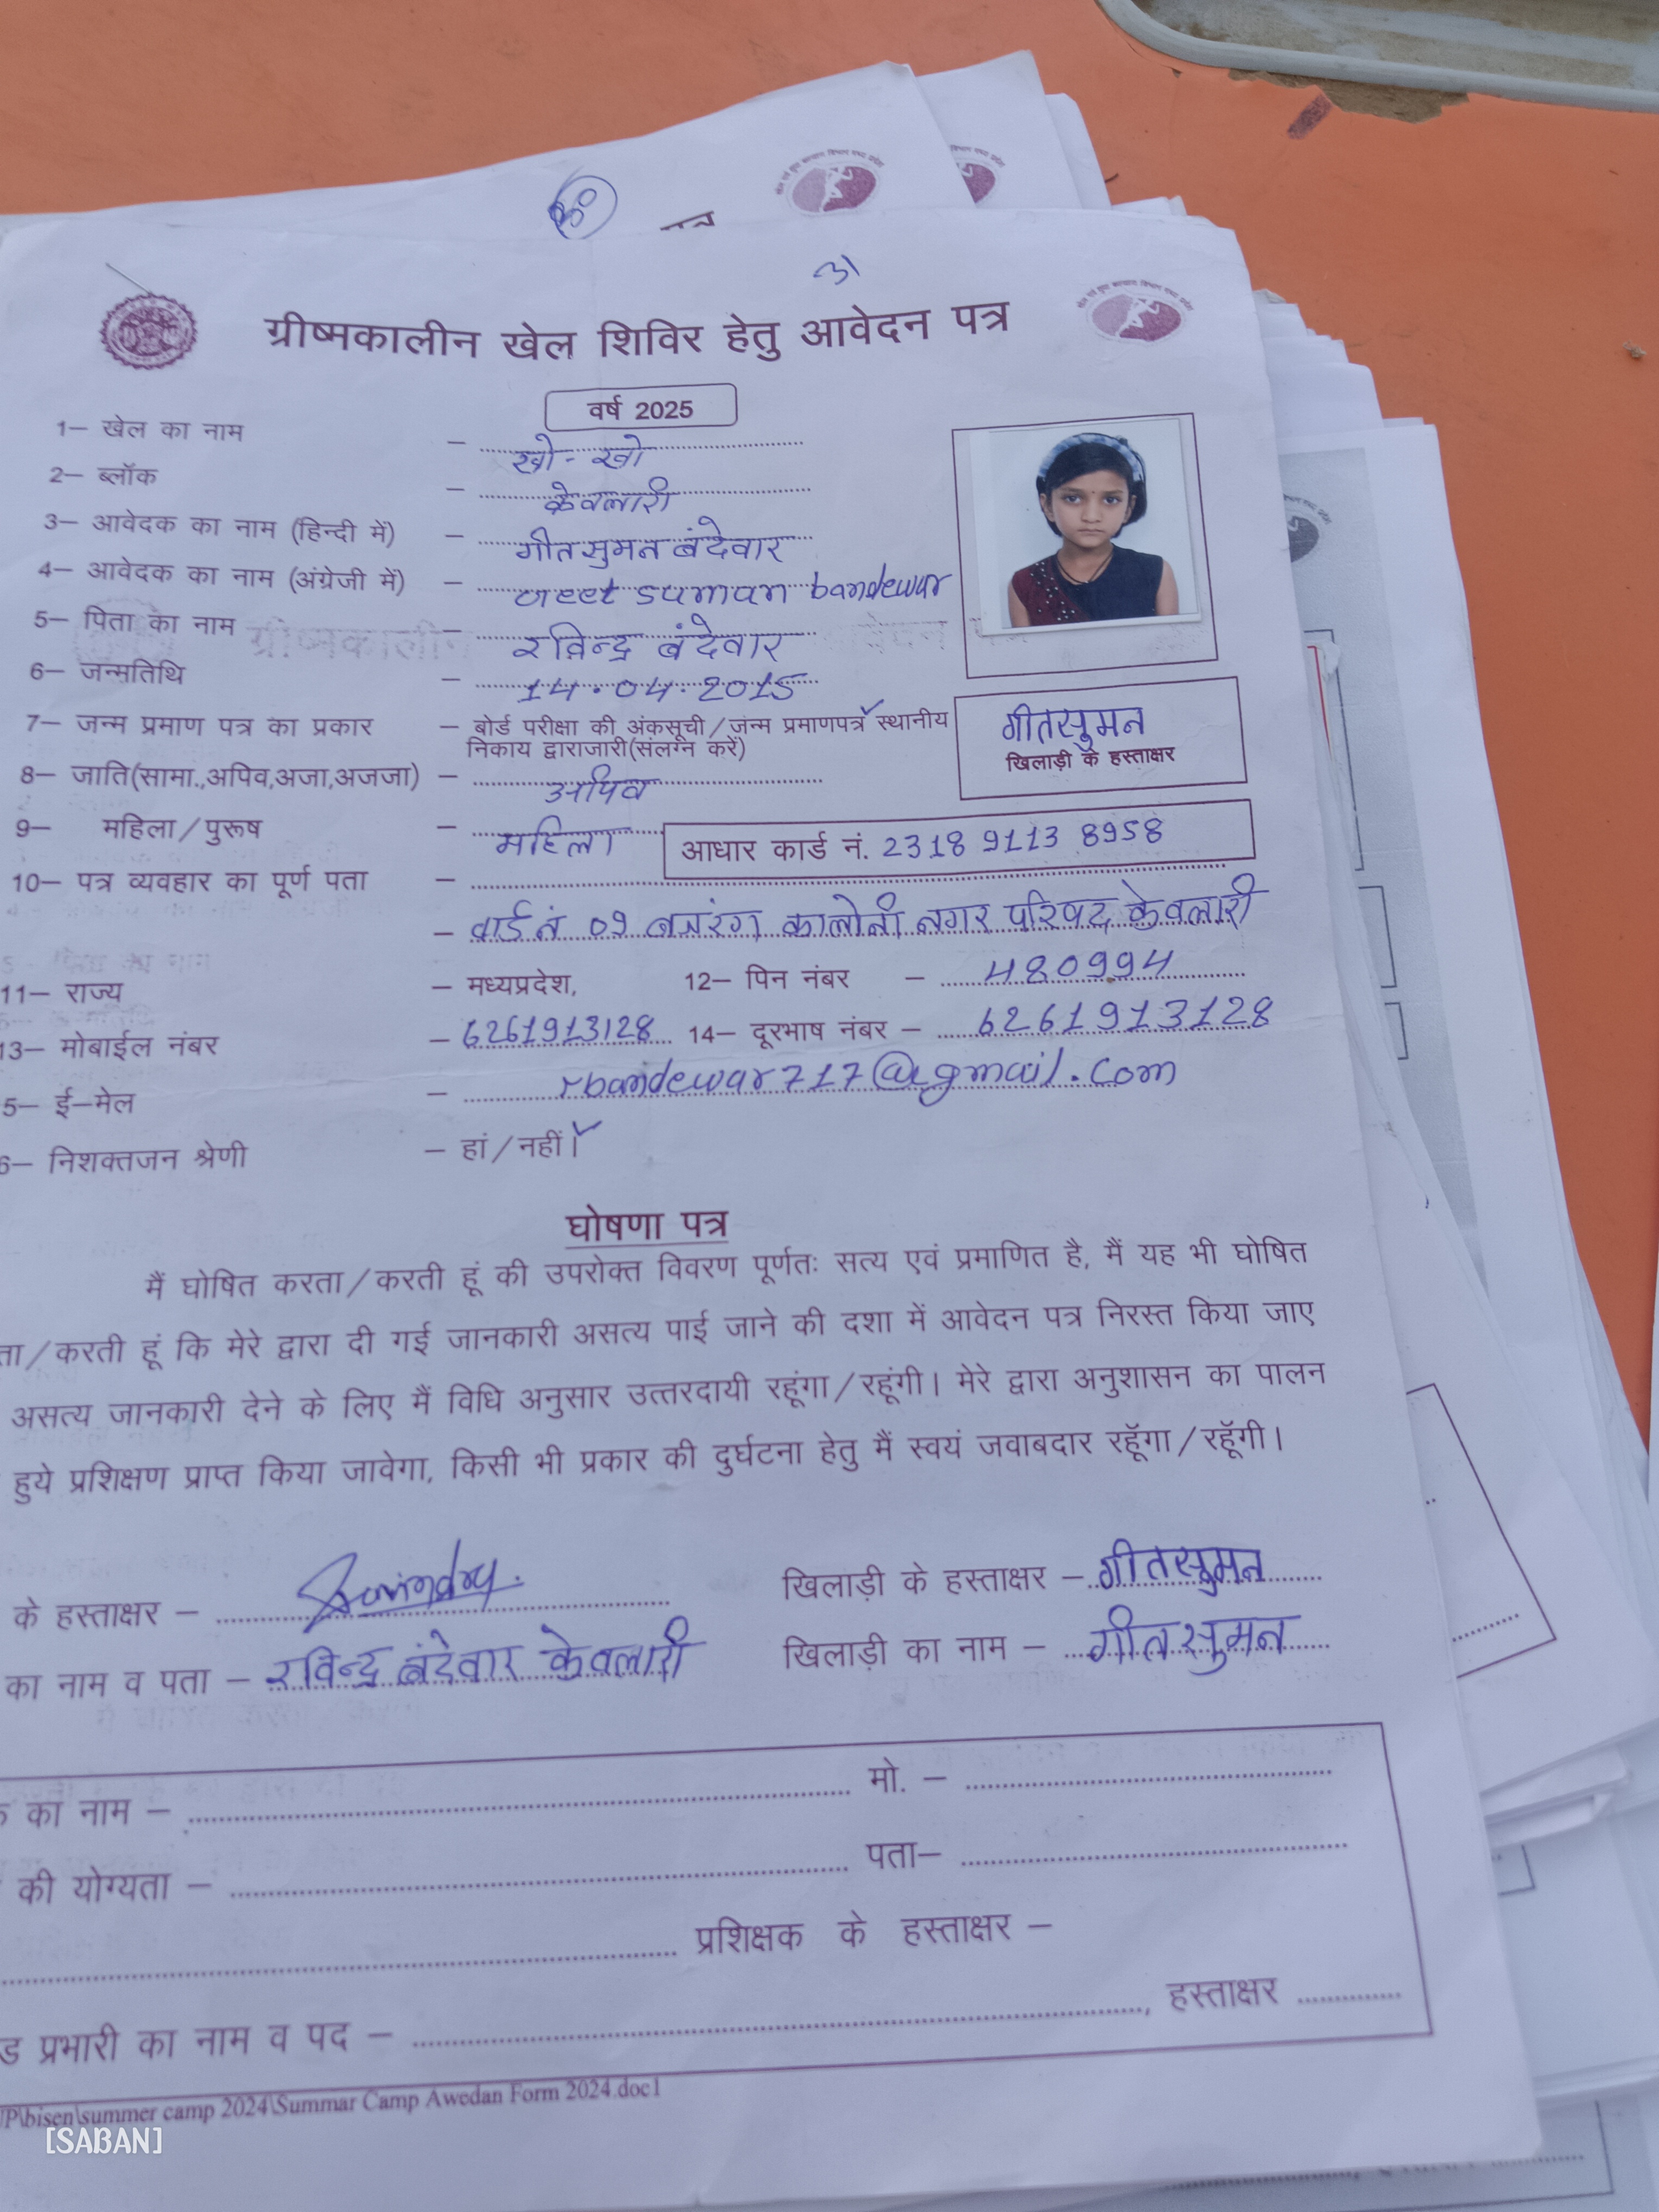 31
ग्रीष्मकालीन खेल शिविर हेतु आवेदन पत्र
वर्ष 2025
1– खेल का नाम – खो-खो
2– ब्लॉक – केवलारी
3– आवेदक का नाम (हिन्दी में) – गीतसुमन बंदेवार
4– आवेदक का नाम (अंग्रेजी में) – Geet suman bandewar
5– पिता का नाम – रविन्द्र बंदेवार
6– जन्मतिथि – 14.04.2015
7– जन्म प्रमाण पत्र का प्रकार – बोर्ड परीक्षा की अंकसूची/जन्म प्रमाणपत्र स्थानीय
निकाय द्वाराजारी(संलग्न करें)
गीतसुमन
खिलाड़ी के हस्ताक्षर
8– जाति(सामा.,अपिव,अजा,अजजा) – अपिव
9– महिला/पुरूष – महिला
आधार कार्ड नं. 2318 9113 8958
10– पत्र व्यवहार का पूर्ण पता –
– वार्ड नं 09 बजरंग कालोनी नगर परिषद केवलारी
11– राज्य – मध्यप्रदेश, 12– पिन नंबर – 480994
13– मोबाईल नंबर – 6261913128 14– दूरभाष नंबर – 6261913128
5– ई–मेल – rbandewar717@gmail.com
6– निशक्तजन श्रेणी – हां/नहीं।
घोषणा पत्र
मैं घोषित करता/करती हूं की उपरोक्त विवरण पूर्णतः सत्य एवं प्रमाणित है, मैं यह भी घोषित
ता/करती हूं कि मेरे द्वारा दी गई जानकारी असत्य पाई जाने की दशा में आवेदन पत्र निरस्त किया जाए
असत्य जानकारी देने के लिए मैं विधि अनुसार उत्तरदायी रहूंगा/रहूंगी। मेरे द्वारा अनुशासन का पालन
हुये प्रशिक्षण प्राप्त किया जावेगा, किसी भी प्रकार की दुर्घटना हेतु मैं स्वयं जवाबदार रहूॅगा/रहूॅगी।
के हस्ताक्षर – खिलाड़ी के हस्ताक्षर – गीतसुमन
का नाम व पता – रविन्द्र बंदेवार केवलारी खिलाड़ी का नाम – गीतसुमन
का नाम – मो. –
की योग्यता – पता–
प्रशिक्षक के हस्ताक्षर –
ड प्रभारी का नाम व पद – , हस्ताक्षर
JP\bisen\summer camp 2024\Summar Camp Awedan Form 2024.doc1
[SABAN]